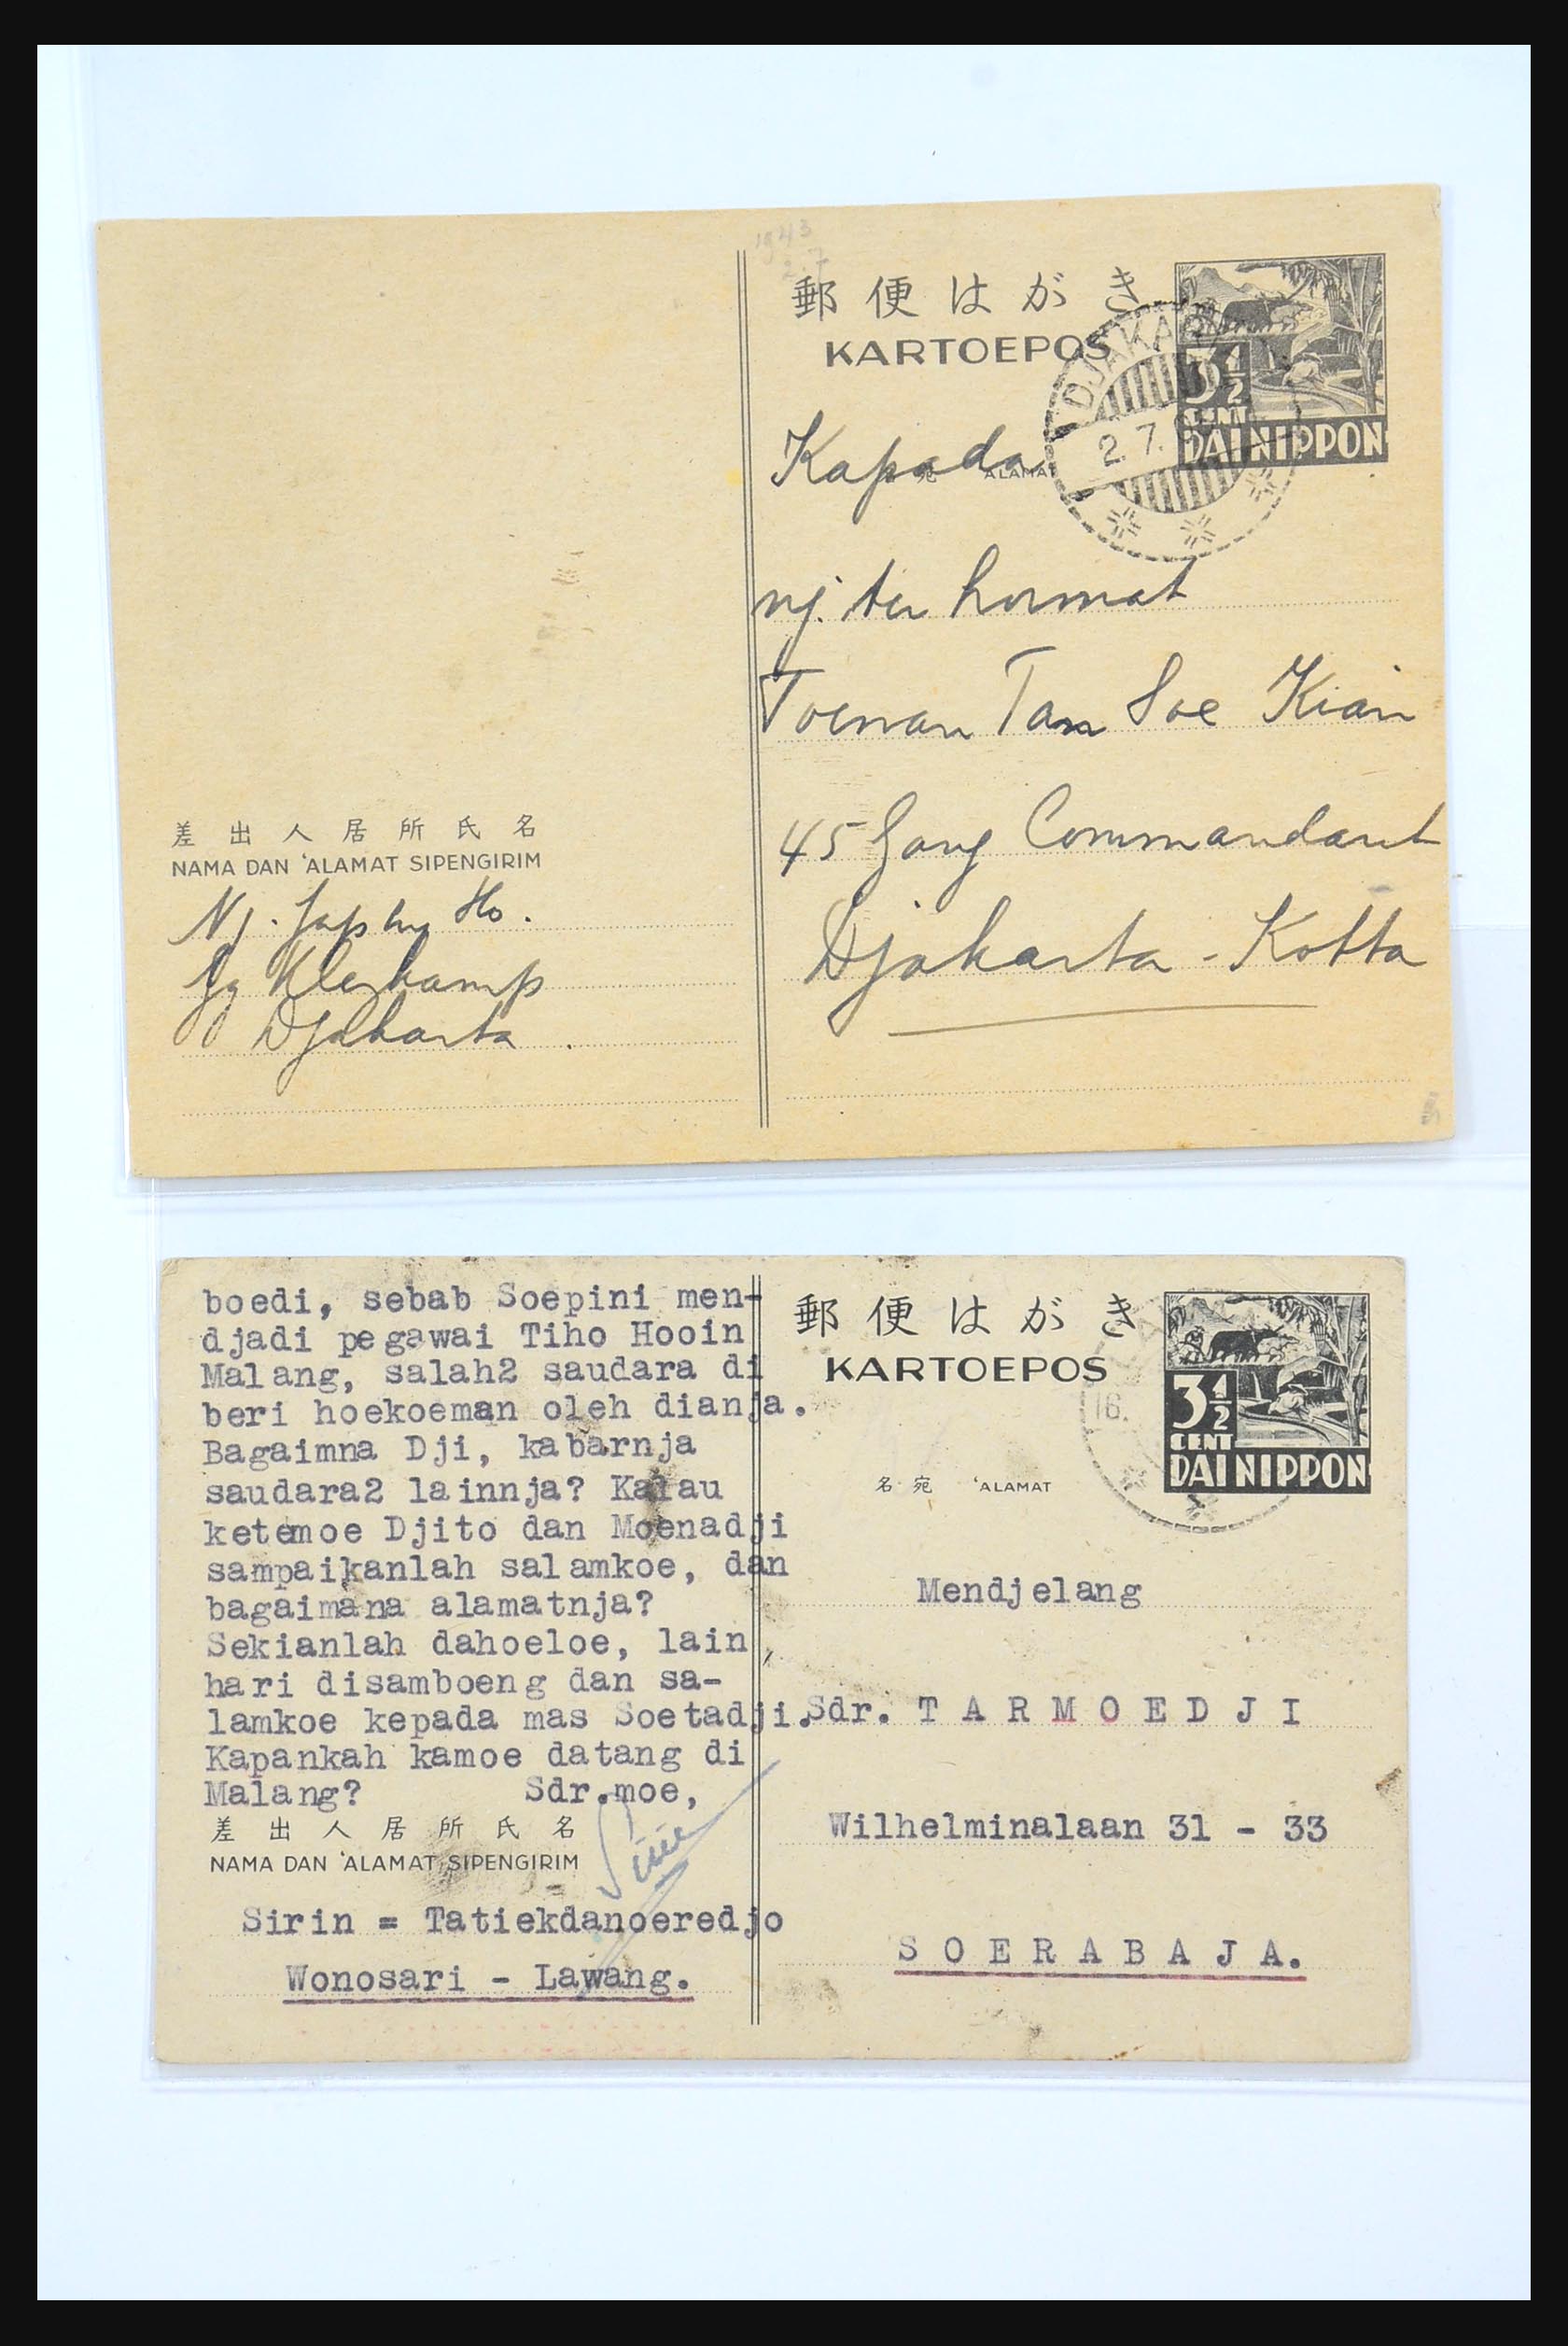 1943
2.7
郵便はがき
KARTOEPOS
3½
CENT
DAI NIPPON
DJAKARTA
2.7.
Kapada
名宛 'ALAMAT
nj. ter hormat
Toewan Tan Soe Kian
45 Gang Commandant
Djakarta - Kotta
差出人居所氏名
NAMA DAN 'ALAMAT SIPENGIRIM
Nj. Jap Ho.
Gg Klerkamp
Djakarta.
boedi, sebab Soepini men-
djadi pegawai Tiho Hooin
Malang, salah2 saudara di
beri hoekoeman oleh dianja.
Bagaimna Dji, kabarnja
saudara2 lainnja? Kalau
ketemoe Djito dan Moenadji
sampaikanlah salamkoe, dan
bagaimana alamatnja?
Sekianlah dahoeloe, lain
hari disamboeng dan sa-
lamkoe kepada mas Soetadji.
Kapankah kamoe datang di
Malang? Sdr.moe,
差出人居所氏名
NAMA DAN 'ALAMAT SIPENGIRIM
Sirin = Tatiekdanoeredjo
Wonosari - Lawang.
郵便はがき
KARTOEPOS
3½
CENT
DAI NIPPON
16.
名宛 'ALAMAT
Mendjelang
Sdr. T A R M O E D J I
Wilhelminalaan 31 - 33
S O E R A B A J A.